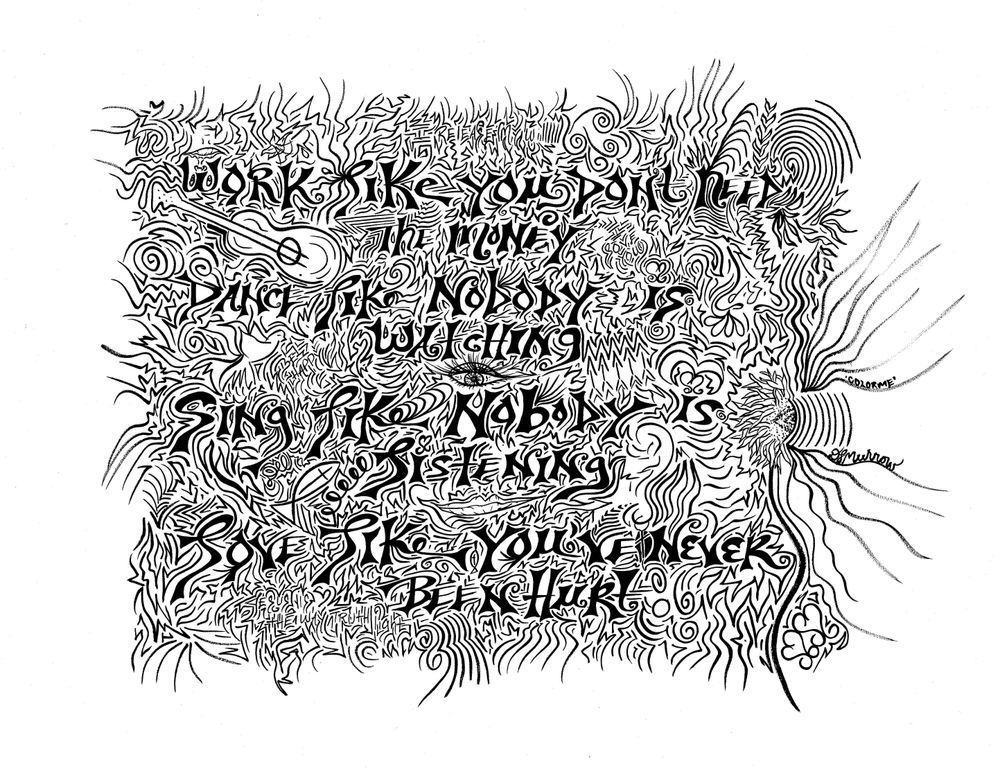 Work like you dont need
the money
Dance like Nobody is
watching
Sing like Nobody is
Listening
Love like you've Never
Been Hurt
'COLORME'
Murrow